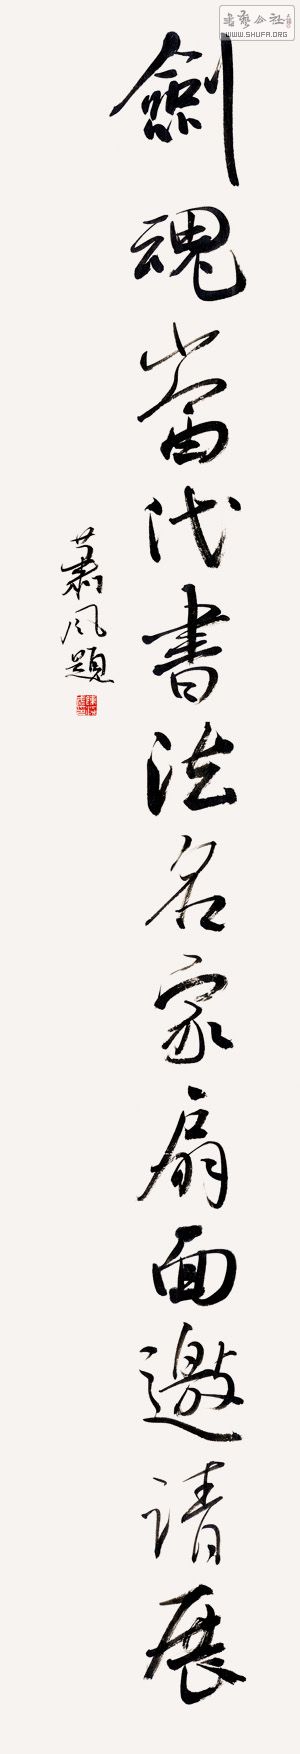 劍魂當代書法名家扇面邀請展
蕭风題
書藝公社
WWW.SHUFA.ORG